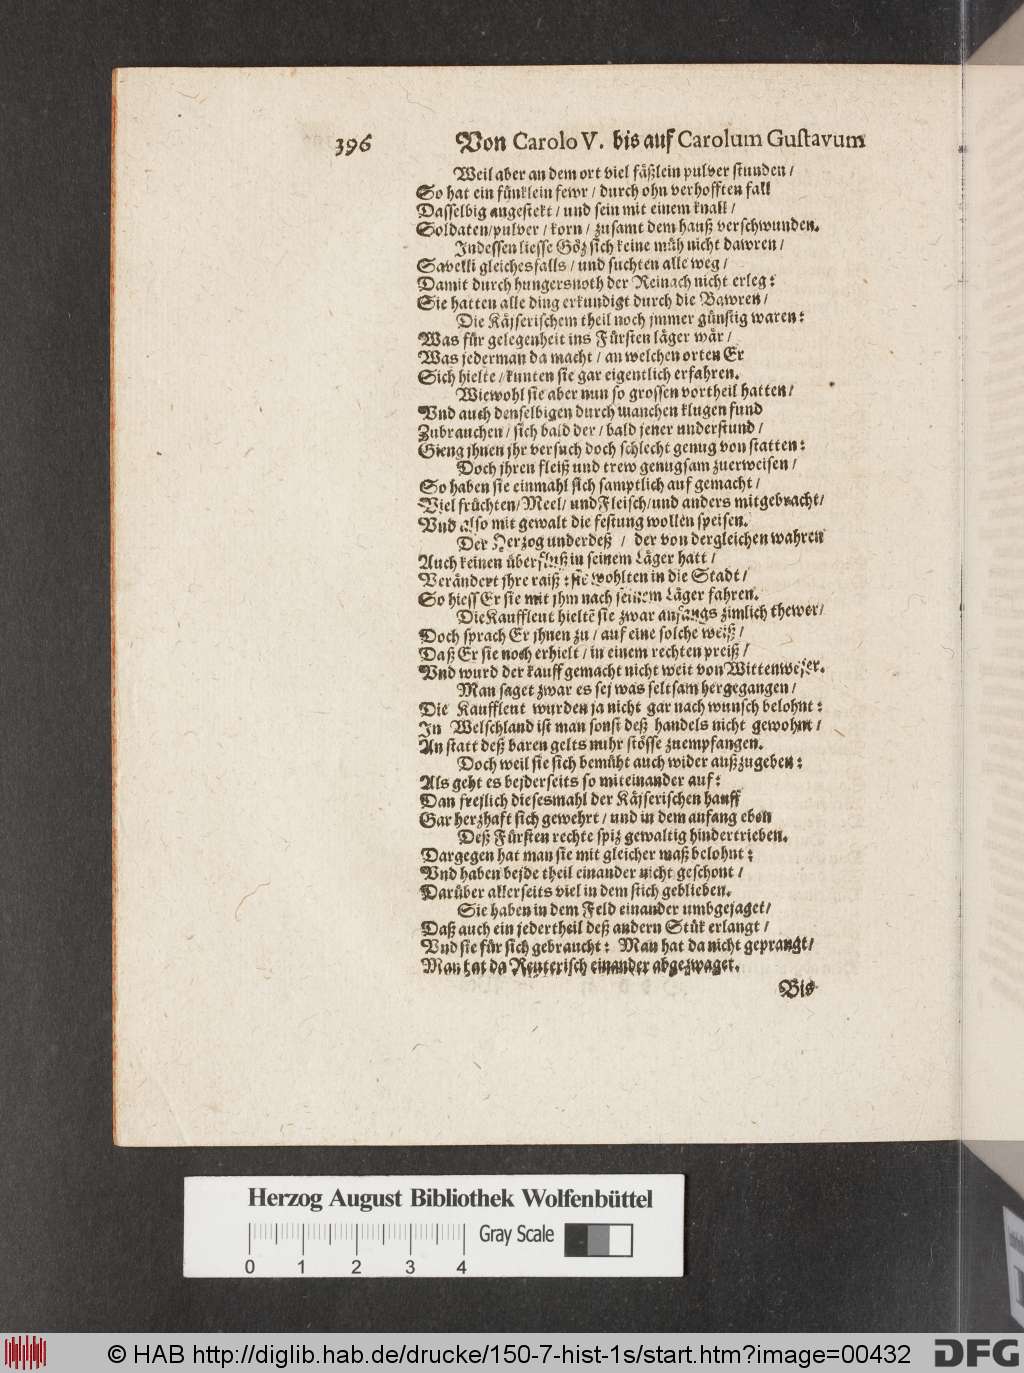 396 Von Carolo V. bis auf Carolum Gustavum
Weil aber an dem ort viel fäßlein pulver stunden /
So hat ein fünklein fewr / durch ohn verhofften fall
Dasselbig angestekt / und sein mit einem knall /
Soldaten / pulver / korn / zusamt dem hauß verschwunden.
Indessen liesse Göz sich keine müh nicht dawren /
Savelli gleichesfalls / und suchten alle weg /
Damit durch hungersnoth der Reinach nicht erleg:
Sie hatten alle ding erkundigt durch die Bawren /
Die Käjserischem theil noch jmmer günstig waren:
Was für gelegenheit ins Fürsten läger wär /
Was jederman da macht / an welchen orten Er
Sich hielte / kunten sie gar eigentlich erfahren.
Wiewohl sie aber nun so grossen vortheil hatten /
Vnd auch denselbigen durch manchen klugen fund
Zubrauchen / sich bald der / bald jener understund /
Gieng jhnen jhr versuch doch schlecht genug von statten:
Doch jhren fleiß und trew genugsam zuerweisen /
So haben sie einmahl sich samptlich auf gemacht /
Viel früchten / Meel / und Fleisch / und anders mitgebracht /
Vnd also mit gewalt die festung wollen speisen.
Der Herzog underdeß / der von dergleichen wahren
Auch keinen überfluß in seinem Läger hatt /
Verändert jhre raiß: sie wohlten in die Stadt /
So hiess Er sie mit jhm nach seinem Läger fahren.
Die Kauffleut hieltẽ sie zwar anfangs zimlich thewer /
Doch sprach Er jhnen zu / auf eine solche weiß /
Daß Er sie noch erhielt / in einem rechten preiß /
Vnd wurd der kauff gemacht nicht weit von Wittenwejer.
Man saget zwar es sej was seltsam hergegangen /
Die Kauffleut wurden ja nicht gar nach wunsch belohnt:
In Welschland ist man sonst deß handels nicht gewohnt /
An statt deß baren gelts nuhr stösse zuempfangen.
Doch weil sie sich bemüht auch wider außzugeben:
Als geht es bejderseits so miteinander auf:
Dan frejlich diesesmahl der Käjserischen hauff
Gar herzhaft sich gewehrt / und in dem anfang eben
Deß Fürsten rechte spiz gewaltig hindertrieben.
Dargegen hat man sie mit gleicher maß belohnt:
Vnd haben bejde theil einander nicht geschont /
Darüber allerseits viel in dem stich geblieben.
Sie haben in dem Feld einander umbgejaget /
Daß auch ein jedertheil deß andern Stük erlangt /
Vnd sie für sich gebraucht: Man hat da nicht geprangt /
Man hat da Reuterisch einander abgezwaget.
Bis
Herzog August Bibliothek Wolfenbüttel
Gray Scale
0 1 2 3 4
© HAB http://diglib.hab.de/drucke/150-7-hist-1s/start.htm?image=00432
DFG